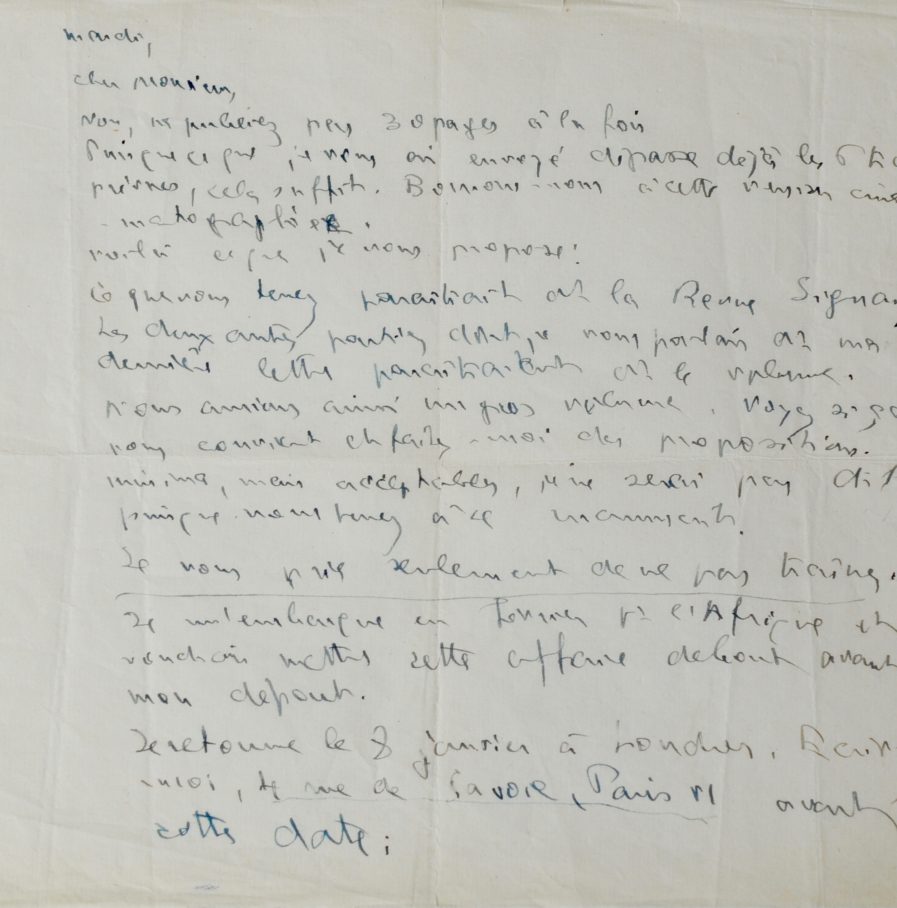 mardi,
cher monsieur,
Non, ne publiez pas 30 pages à la fois
Puisque ce que je vous ai envoyé dépasse dejà les
prévues, cela suffit. Bornons-nous à cette version ciné
-matographiée.
voilà ce que je vous propose:
Ce que vous tenez paraîtrait ds la Revue Signau
Les deux autres parties dont je vous parlais ds ma
dernière lettre paraîtraient ds le volume.
Nous aurions ainsi un gros volume. Voyez si ça
vous convient et faites-moi des propositions.
minima, mais acceptables, je ne serai pas dif
puisque vous tenez à ce manuscrit.
Je vous prie seulement de ne pas traîner.
Je m'embarque en février pr l'Afrique et
voudrais mettre cette affaire debout avant
mon départ.
Je retourne le 8 janvier à Londres. Ecriv
moi, rue de Savoie, Paris VI avant
cette date;